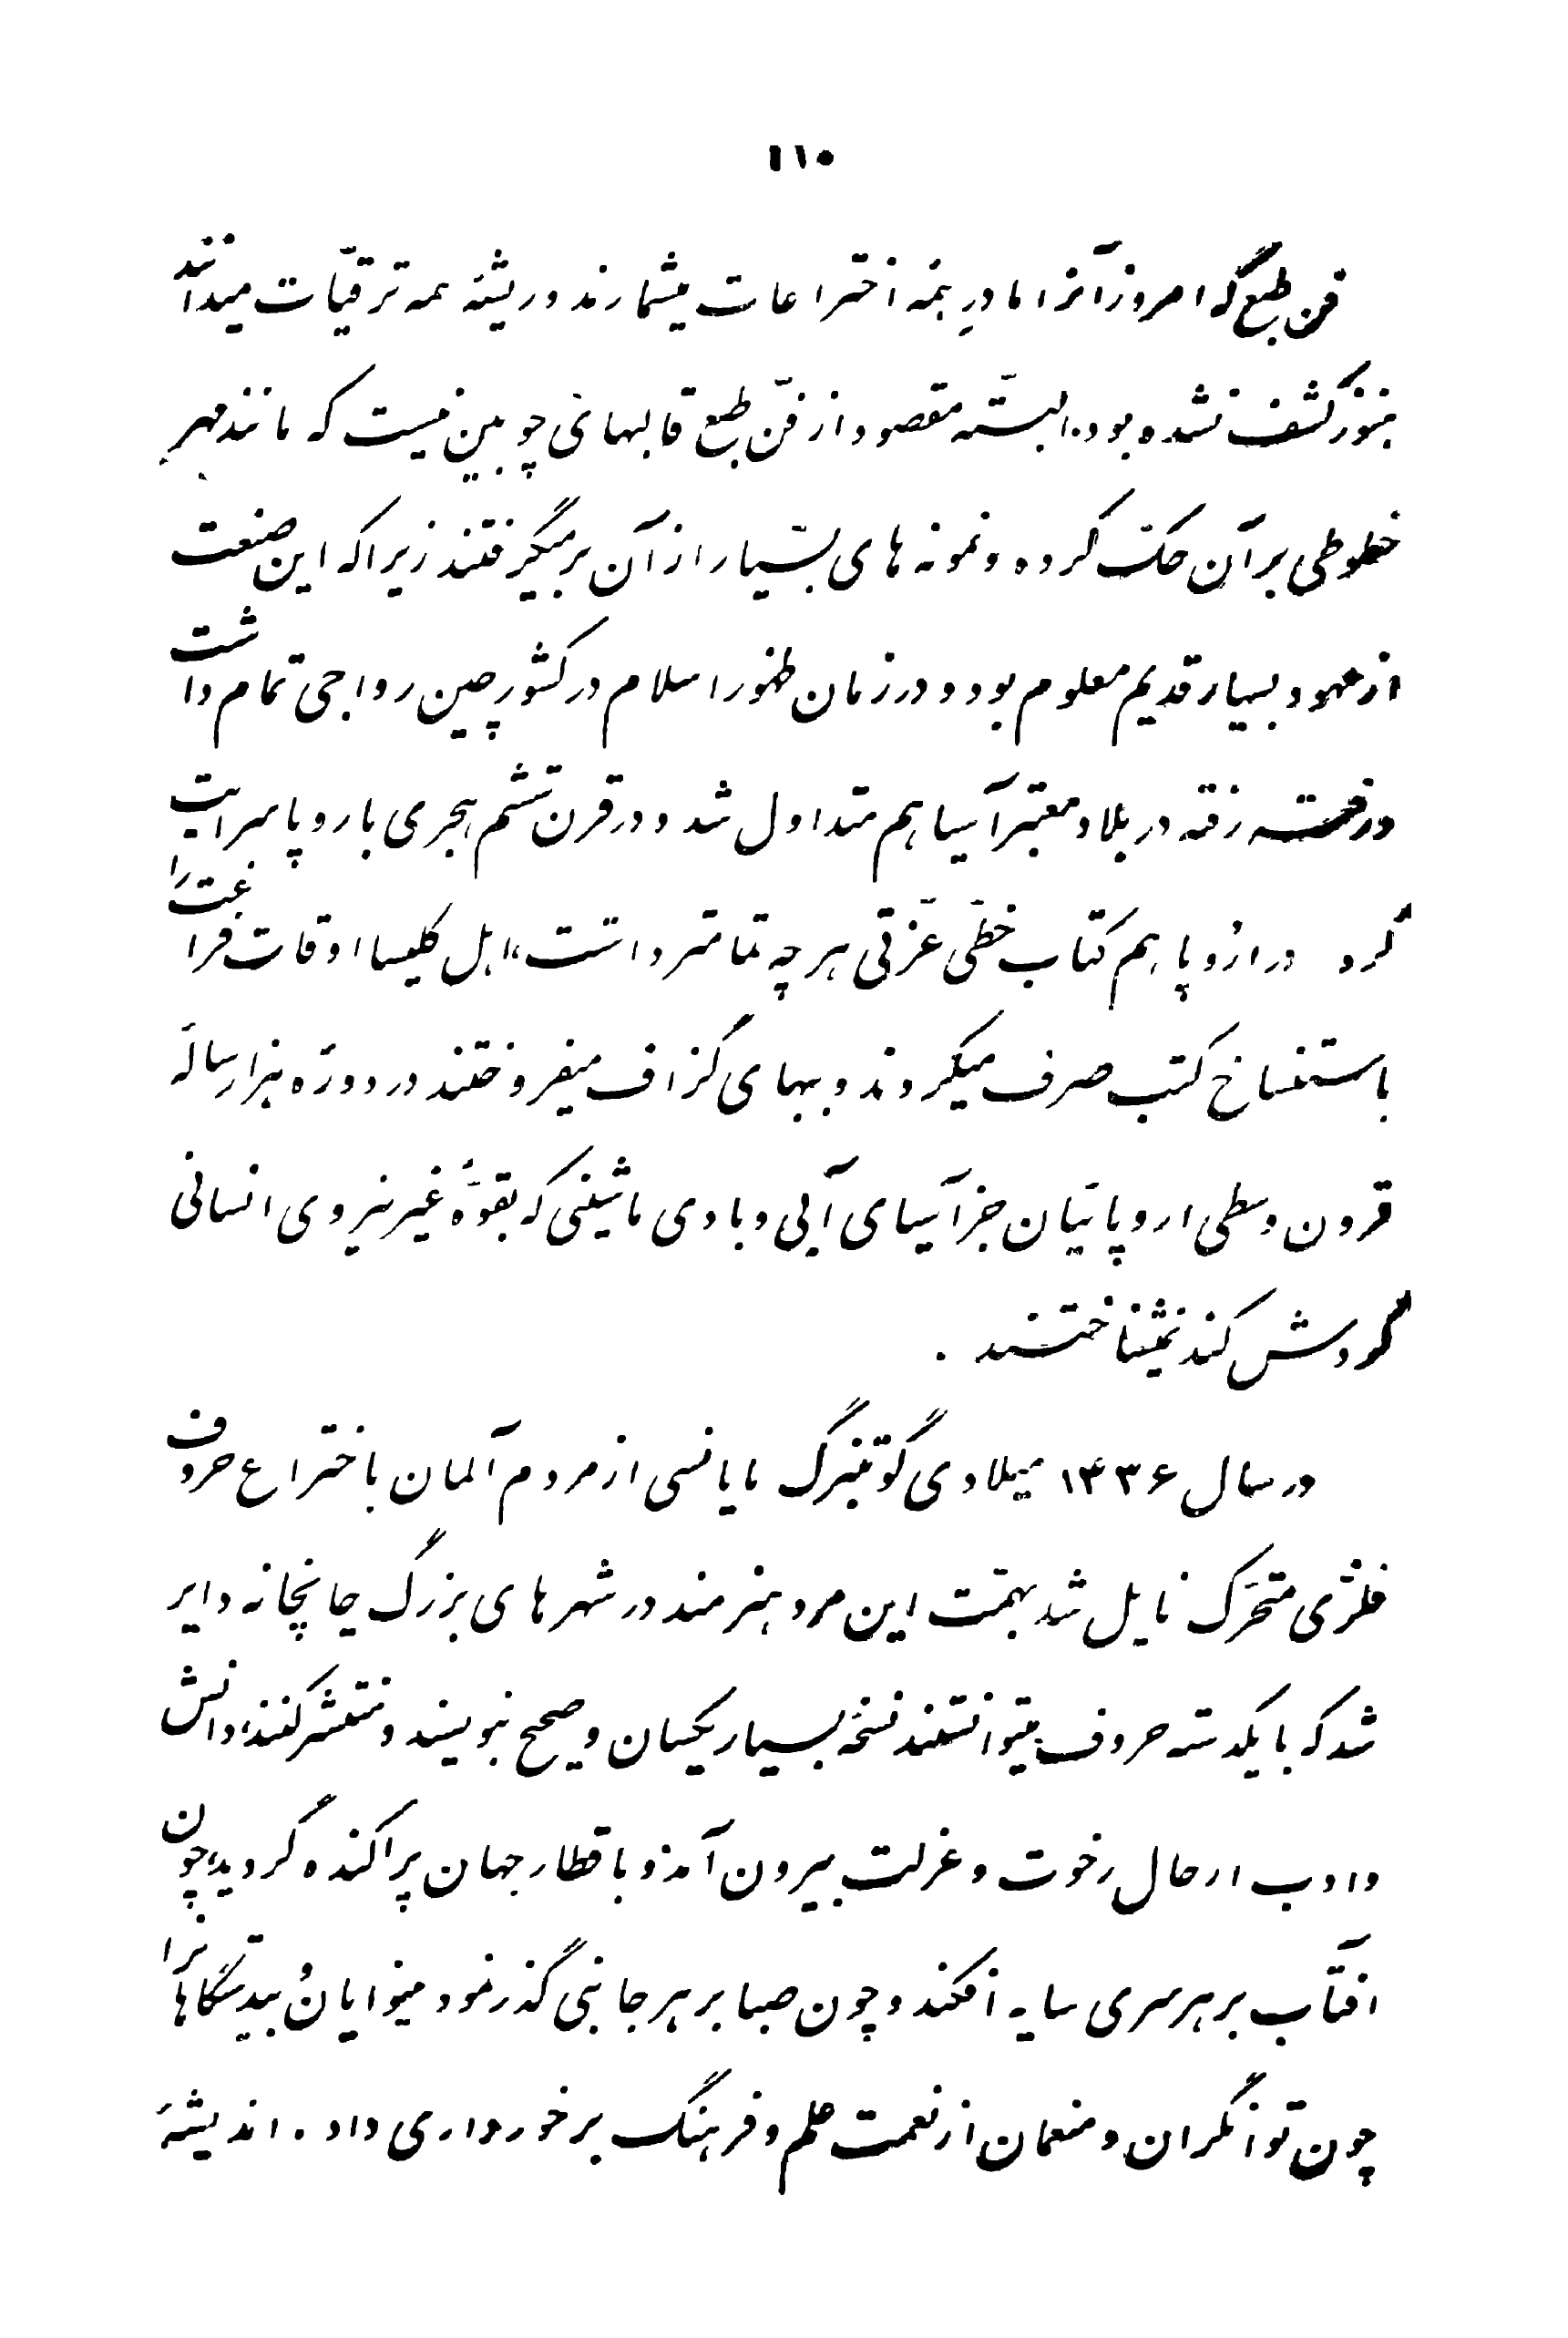 ۱۱۰
فن طبع که امروز آنرا مادرِ همهٔ اختراعات میشمارند و ریشهٔ همه ترقیّات میدانند
هنوز کشف نشده بود. البتّه مقصود از فنّ طبع قالبهای چوبین نیست که مانند مهر
خطوطی بر آن حک کرده و نمونه های بسیار از آن برمیگرفتند زیرا که این صنعت
از عهود بسیار قدیم معلوم بود و در زمان ظهور اسلام در کشور چین رواجی تمام داشت
و رفته رفته در بلاد معتبر آسیا هم متداول شد و در قرن ششم هجری باروپا سرایت
کرد در اروپا هم کتاب خطّی عزّتی هر چه تمامتر داشت، اهل کلیسا اوقات فراغت را
باستنساخ کتب صرف میکردند و ببهای گزاف میفروختند در دورهٔ هزار سالهٔ
قرون وسطی اروپائیان جز آسیای آبی و بادی ماشینی که بقوّهٔ غیر نیروی انسانی
گردش کند نمیشناختند .
در سال ۱۴۳۶ میلادی گوتنبرگ مایانسی از مردم آلمان باختراع حروف
فلزی متحرّک نایل شد بهمّت این مرد هنرمند در شهرهای بزرگ چاپخانه دایر
شد که با یکدسته حروف میتوانستند نسخهٔ بسیار یکسان و صحیح بنویسند و منتشر کنند، دانش
و ادب از حال رخوت و عزلت بیرون آمد و باقطار جهان پراکنده گردید، چون
آفتاب بر هر سری سایه افکند و چون صبا بر هر جانبی گذر نمود بینوایان و تهیدستگاهانرا
چون توانگران و منعمان از نعمت علم و فرهنگ برخورداری داد . اندیشهٔ